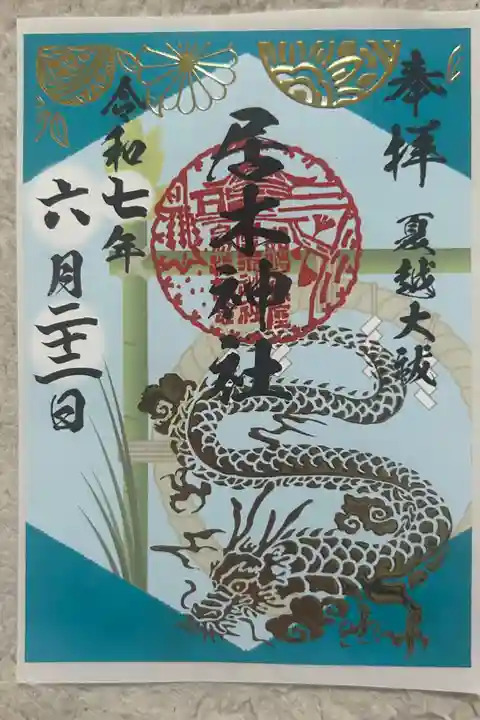 奉拝
夏越大祓
居木神社
令和七年
六月二十二日